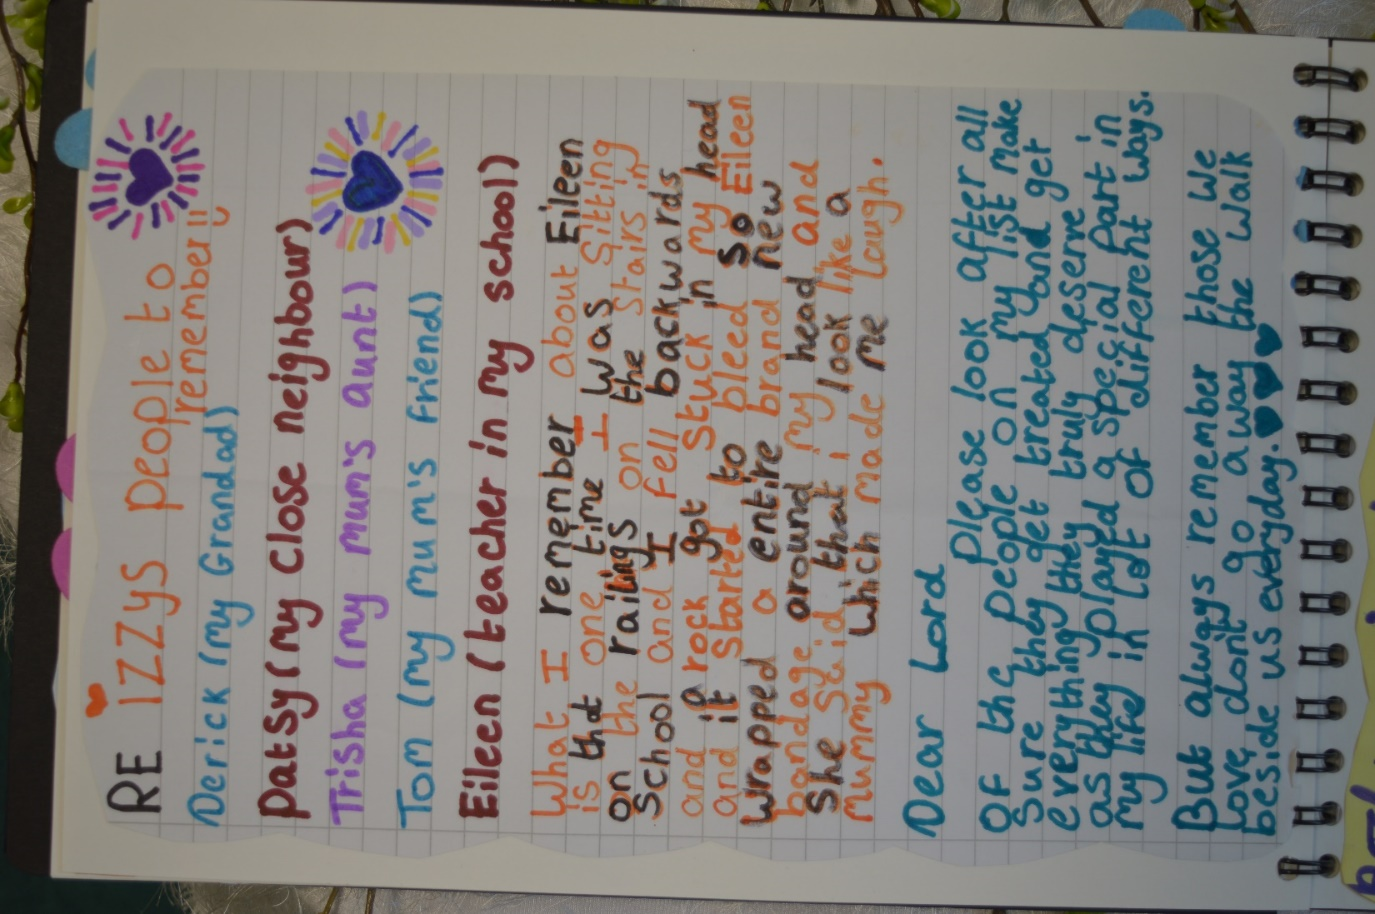 RE IZZYS people to
remember!!
Derick (my Grandad)
Patsy (my close neighbour)
Trisha (my mum's aunt)
Tom (my mum's friend)
Eileen (teacher in my school)
What I remember about Eileen
is that one time I was sitting
on the railings on the stairs in
School and I fell backwards
and a rock got stuck in my head
and it started to bleed so Eileen
wrapped a entire brand new
bandage around my head and
She said that i look like a
mummy which made me laugh.
Dear Lord
please look after all
of the people on my list make
Sure they get treated and get
everything they truly deserve
as they played a special part in
my life in lot of different ways.
But always remember those we
love don't go away the walk
beside us everyday.